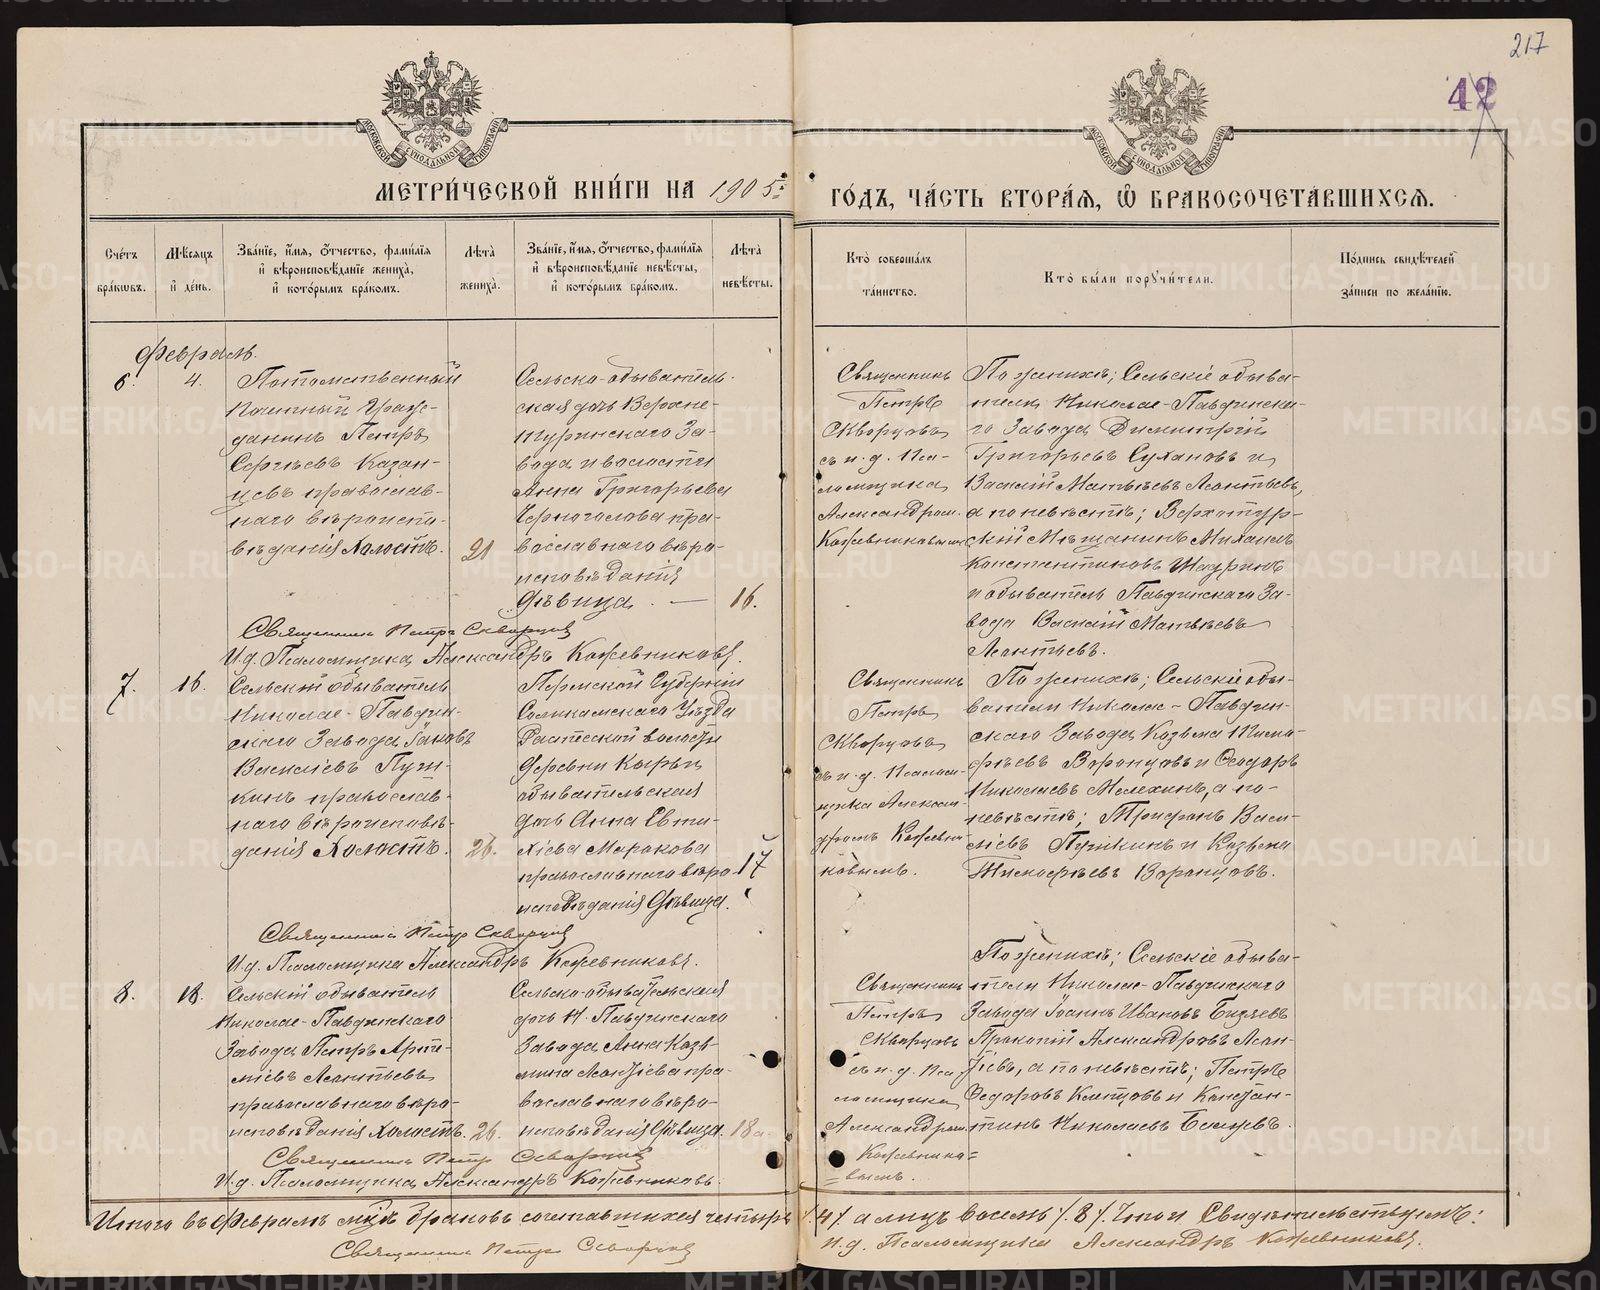 217
42
МОСКОВСКОЙ СѴНОДАЛЬНОЙ ТИПОГРАФІИ
МОСКОВСКОЙ СѴНОДАЛЬНОЙ ТИПОГРАФІИ
МЕТРИ́ЧЕСКОЙ КНИ́ГИ НА 1905
ГО́ДЪ, ЧА́СТЬ ВТОРА́Я, Ѽ БРАКОСОЧЕТА́ВШИХСЯ.
Сче́тъ бра́ковъ.
Мѣ́сяцъ и҆ де́нь.
Зва́нїе, и҆́мя, ѻ҆́тчество, фами́лїя
и҆ вѣроисповѣ́данїе жениха̀,
и҆ кото́рымъ бра́комъ.
Лѣ́та жениха̀.
Зва́нїе, и҆́мя, ѻ҆́тчество, фами́лїя
и҆ вѣроисповѣ́данїе невѣ́сты,
и҆ кото́рымъ бра́комъ.
Лѣ́та невѣ́сты.
Кто̀ соверша́лъ та́инство.
Кто̀ бы́ли порꙋчи́тели.
По́дпись свидѣ́телей за́писи по жела́нїю.
Февраль.
6. 4.
Потомственный
Почетный Граж-
данинъ Петръ
Сергѣевъ Казан-
цевъ православ-
наго вѣроиспо-
вѣданія Холостъ.
21
Сельско-обыватель-
ская дочь Верхне-
Туринскаго За-
вода и волости
Анна Григорьева
Черноголова пра-
вославнаго вѣро-
исповѣданія
Дѣвица. —
16.
Священникъ
Петръ
Скворцовъ
съ и. д. Пса-
ломщика
Александром.
Кожевниковымъ
По женихѣ; Сельскіе обыва-
тели Николае-Павдинска-
го Завода Димитрій
Григорьевъ Сухановъ и
Василій Матвѣевъ Леонтьевъ,
а по невѣстѣ; Верхотур-
скій Мѣщанинъ Михаилъ
Константиновъ
и обыватель Павдинскаго За-
вода Василій Матвѣевъ
Леонтьевъ.
Священникъ Петръ Скворцовъ
И. д. Псаломщика Александръ Кожевниковъ.
7. 16.
Сельскій обыватель
Николае-Павдин-
скаго Завода Іаковъ
Василіевъ Пуш-
кинъ православ-
наго вѣроисповѣ-
данія Холостъ.
26.
Пермской Губерніи
Соликамскаго Уѣзда
волости
Деревни
обывательская
дочь Анна Евти-
хіева Маракова
православнаго вѣро-
исповѣданія Дѣвица.
17
Священникъ
Петръ
Скворцовъ
съ и. д. Псалом-
щика Алексан-
дромъ Кожевни-
ковымъ.
По женихѣ; Сельскіе обы-
ватели Николае-Павдин-
скаго Завода Козьма Тимо-
фѣевъ Воронцовъ и Ѳеодоръ
Николаевъ Мелехинъ, а по-
невѣстѣ; Трифонъ Васи-
ліевъ Пушкинъ и Козьма
Тимофѣевъ Воронцовъ.
Священникъ Петръ Скворцовъ
И. д. Псаломщика Александръ Кожевниковъ.
8. 18.
Сельскій обыватель
Николае-Павдинскаго
Завода Петръ Арте-
міевъ Леонтьевъ
православнаго вѣро-
исповѣданія Холостъ.
26.
Сельско-обывательская
дочь Н. Павдинскаго
Завода Анна Козь-
мина Леонтіева пра-
вославнаго вѣро-
исповѣданія Дѣвица.
18
Священникъ
Петръ
Скворцовъ
съ и. д. Пса-
ломщика
Александром.
Кожевнико=
=вымъ.
По женихѣ; Сельскіе обыва-
тели Николае-Павдинскаго
Завода Іоаннъ Ивановъ
Прокопій Александровъ Леон-
тіевъ, а по невѣстѣ; Петръ
Ѳедоровъ и Констан-
тинъ Николаевъ
Священникъ Петръ Скворцовъ
И. д. Псаломщика Александръ Кожевниковъ.
Итого въ Февралѣ мцѣ браковъ сочетавшихся четыре /. 4 /. а лицъ восемь /. 8 /. Что и Свидѣтельствуемъ:
Священникъ Петръ Скворцовъ
И. д. Псаломщика Александръ Кожевниковъ.
METRIKI.GASO-URAL.RU